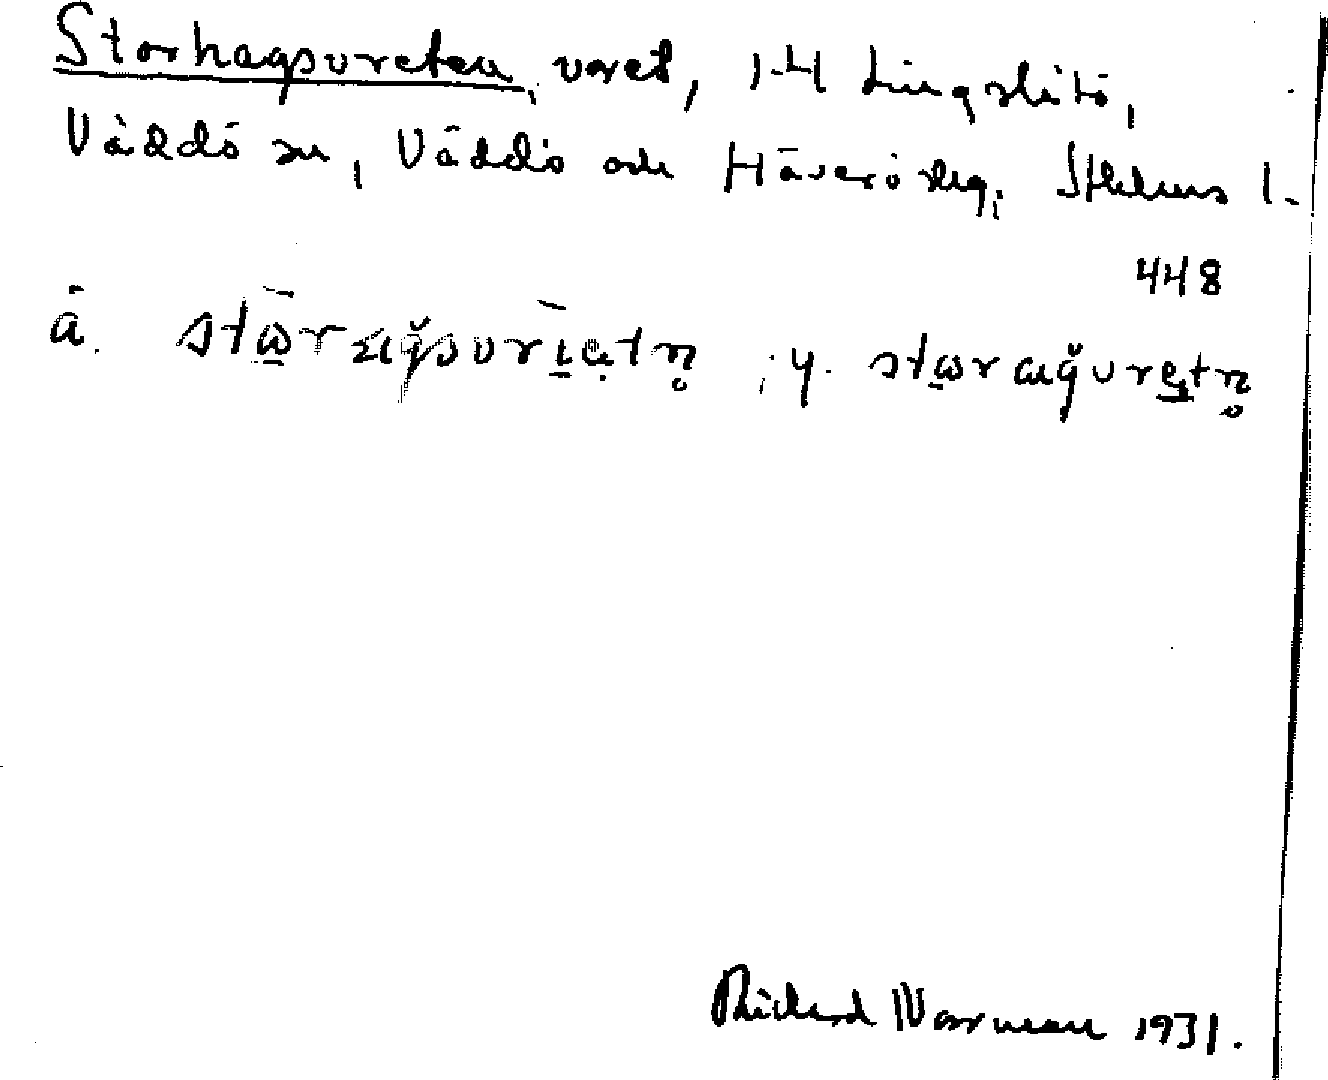 Storhagsvreten, vret, 1-4 Lingslätö,
Väddö sn, Väddö och Häverö skg, Sthlms l.
448
ä. stω̲r aǧsvrı̲ẹtn̥ ; y. stω̲r aǧvre̲tn̥
Richard Norrman 1931.